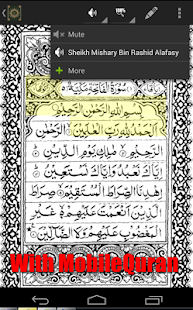 100%
Mute
Sheikh Mishary Bin Rashid Alafasy
More
بِسْمِ اللَّهِ الرَّحْمَٰنِ الرَّحِيمِ
الْحَمْدُ لِلَّهِ رَبِّ الْعَالَمِينَ الرَّحْمَٰنِ
الرَّحِيمِ مَالِكِ يَوْمِ الدِّينِ
إِيَّاكَ نَعْبُدُ وَإِيَّاكَ نَسْتَعِينُ
اهْدِنَا الصِّرَاطَ الْمُسْتَقِيمَ
صِرَاطَ الَّذِينَ أَنْعَمْتَ عَلَيْهِمْ غَيْرِ
الْمَغْضُوبِ عَلَيْهِمْ وَلَا الضَّالِّينَ
With MobileQuran